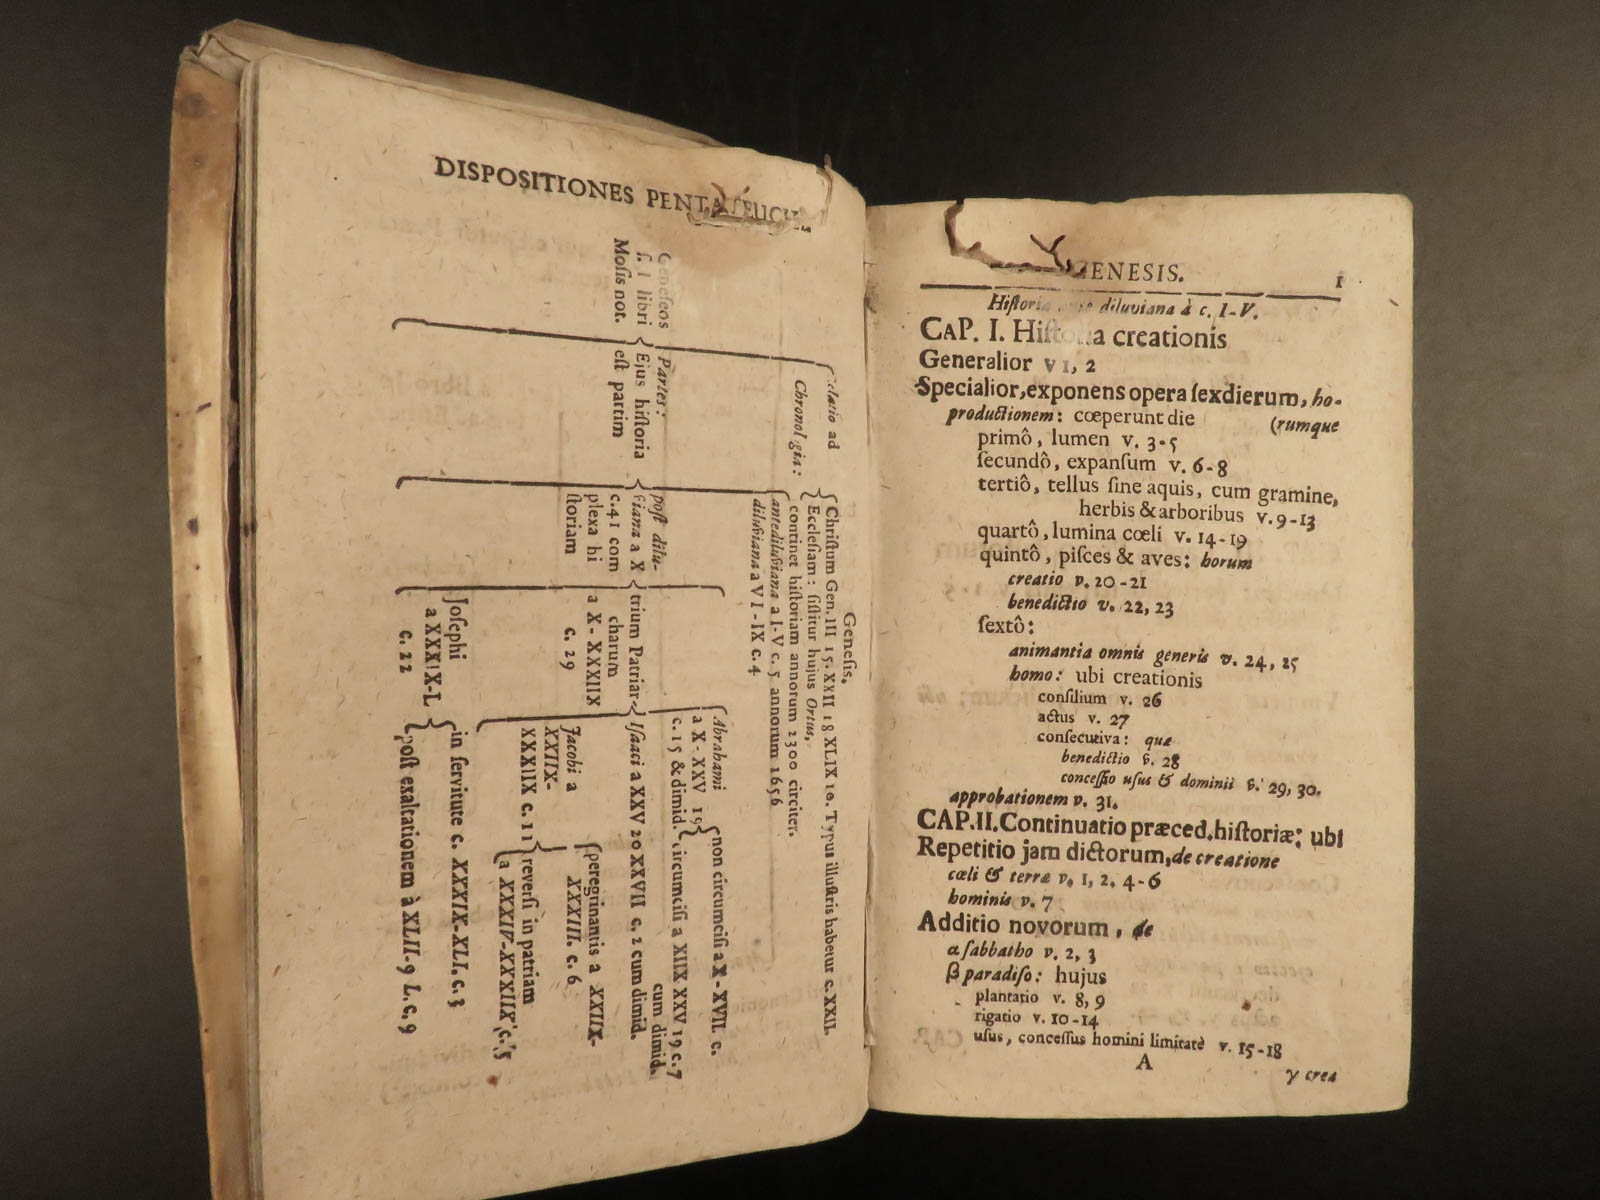 DISPOSITIONES PENTATEUCHI
Genesis.
Relatio ad
Chronologiam:
Christum Gen. III 15. XXII 18 XLIX 10. Typus illustris habetur c. XXII.
Ecclesiam: sistitur hujus Ortus,
continet historiam annorum 2300 circiter.
antediluviana a I-V c. 5 annorum 1656
diluviana a VI-IX c. 4
Geneseos
s. I libri
Mosis not.
Partes:
Ejus historia
est partim
post dilu-
viana a X
c. 41 com
plexa hi
storiam
trium Patriar-
charum
a X-XXXIIX
c. 29
Abrahami
a X-XXV 19
c. 15 & dimid.
non circumcisi a X-XVII. c.
circumcisi a XIIX XXV 19 c. 7
cum dimid.
Isaaci a XXV 20 XXVII c. 2 cum dimid.
Jacobi a
XXIIX-
XXXIIX c. 11
peregrinantis a XXIIX-
XXXIII. c. 6
reversi in patriam
a XXXIV-XXXIIX c. 5
Josephi
a XXXIX-L
c. 22
in servitute c. XXXIX-XLI. c. 3
post exaltationem à XLII-9 L. c. 9
GENESIS. 1
Historia ante diluviana à c. I-V.
CAP. I. Historia creationis
Generalior v 1, 2
Specialior, exponens opera sexdierum, ho-
productionem: cœperunt die (rumque
primô, lumen v. 3-5
secundô, expansum v. 6-8
tertiô, tellus sine aquis, cum gramine,
herbis & arboribus v. 9-13
quartô, lumina cœli v. 14-19
quintô, pisces & aves: horum
creatio v. 20-21
benedictio v. 22, 23
sextô:
animantia omnis generis v. 24, 25
homo: ubi creationis
consilium v. 26
actus v. 27
consecutiva: quæ
benedictio v. 28
concessio usus & dominii v. 29, 30.
approbationem v. 31.
CAP. II. Continuatio præced. historiæ: ubi
Repetitio jam dictorum, de creatione
cœli & terræ v. 1, 2. 4-6
hominis v. 7
Additio novorum, de
α sabbatho v. 2, 3
β paradiso: hujus
plantatio v. 8, 9
rigatio v. 10-14
usus, concessus homini limitatè v. 15-18
A
γ crea